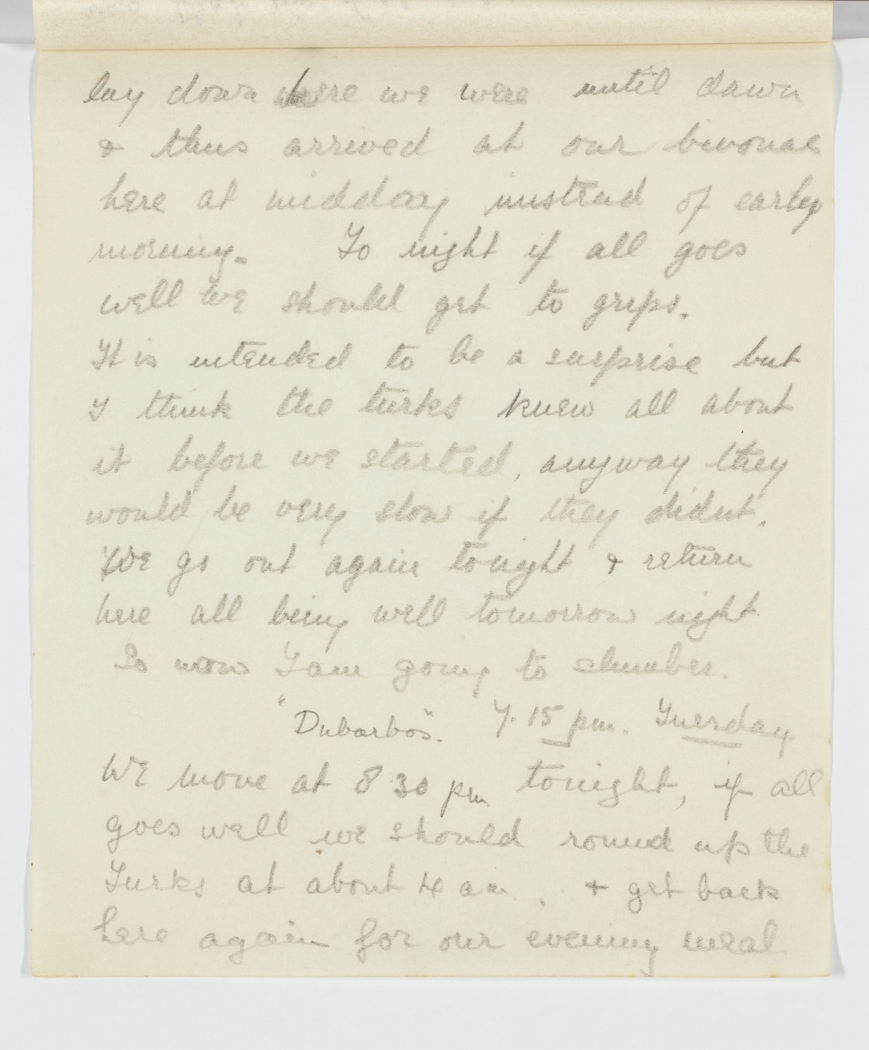 lay down where we were until dawn
& thus arrived at our bivouac
here at midday instead of early
morning. To night if all goes
well we should get to grips.
It is intended to be a surprise but
I think the turks knew all about
it before we started, anyway they
would be very slow if they didnt.
We go out again tonight & return
here all being well tomorrow night
So now I am going to slumber.
"Dubarbos". 7.15 pm. Tuesday
We move at 8 30 pm tonight, if all
goes well we should round up the
Turks at about 4 am. & get back
here again for our evening meal.